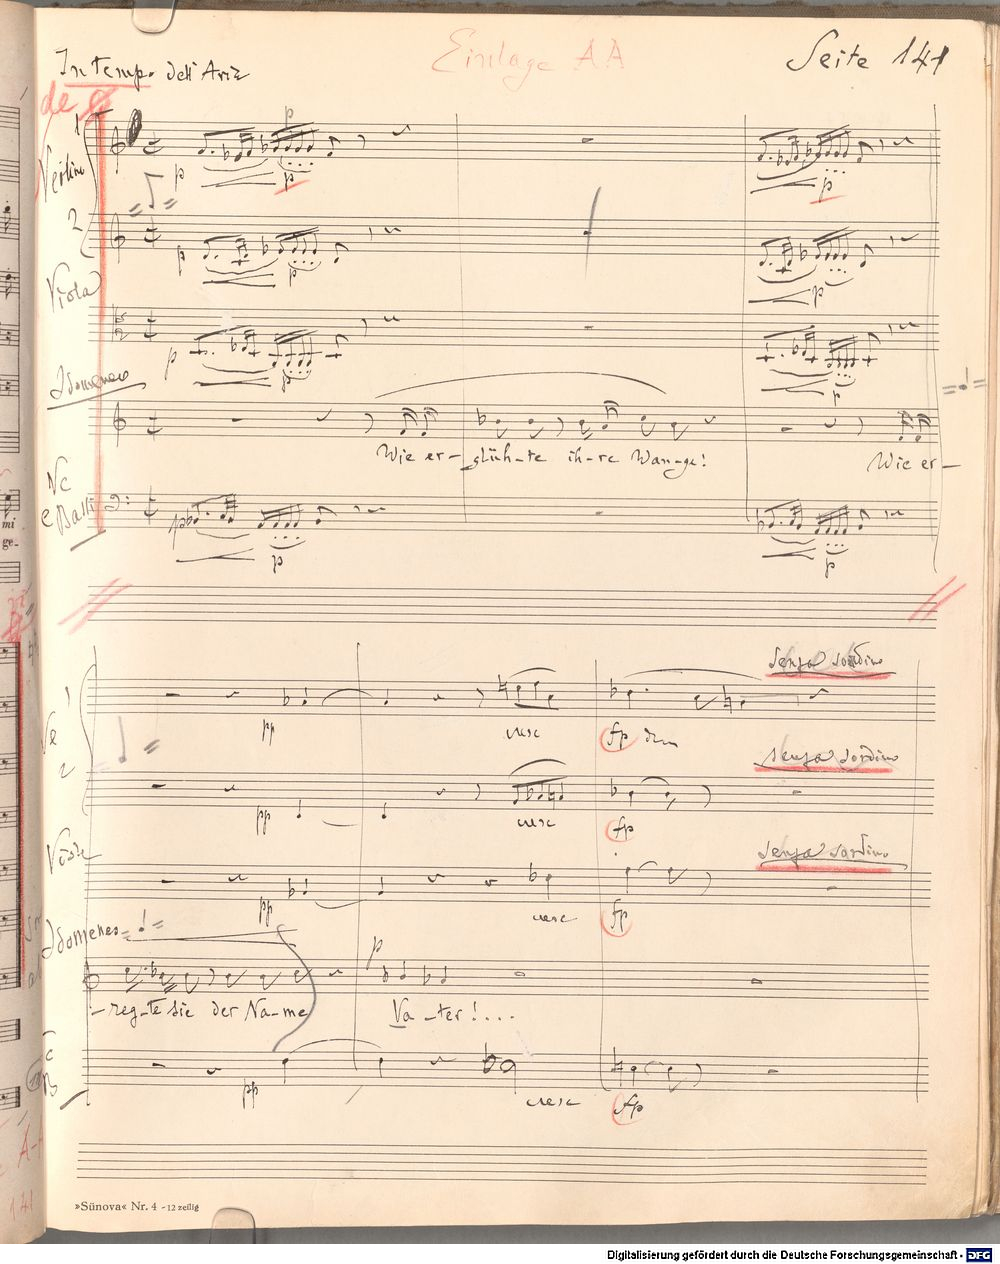 Einlage AA
Seite 141
In Tempo dell'Aria
1
Violino
p
p
p
2
p
p
p
Viola
p
p
p
Idomeneo
Wie er-glüh-te ih-re Wan-ge!
Wie er-
Vc
e Bassi
p
p
p
mi
ge-
senza sordino
1
pp
cresc
fp
senza sordino
2
pp
cresc
fp
senza sordino
Viole
pp
cresc
fp
Idomeneo
p
-reg-te sie der Na-me
Va-ter!...
pp
cresc
fp
»Sünova« Nr. 4 - 12 zeilig
Digitalisierung gefördert durch die Deutsche Forschungsgemeinschaft - DFG